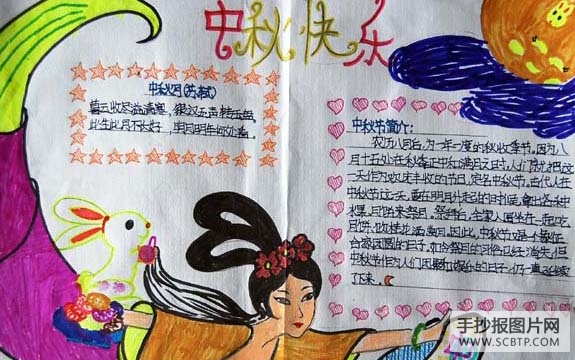 中秋快乐
中秋月(苏轼)
暮云收尽溢清寒，银汉无声转玉盘，
此生此月不长好，明月明年何处看。
中秋节简介：
农历八月后，为一年一度的秋收季节。因为八
月十五处在秋季正中和满月之日，人们就把这
一天作为欢庆丰收的节日，定名中秋节。古代人在
中秋节这一天，要在明月升起的时候，拿出各种
水果、月饼来祭月。祭拜后，全家人围坐在一起吃
月饼，桂花酒赏月。因此，中秋节又是个象征
合家团圆的日子。如今祭月的习俗已经消失，但
中秋节作为人们团聚和娱乐的日子，仍一直延续
下来。
手抄报图片网
WWW.SCBTP.COM